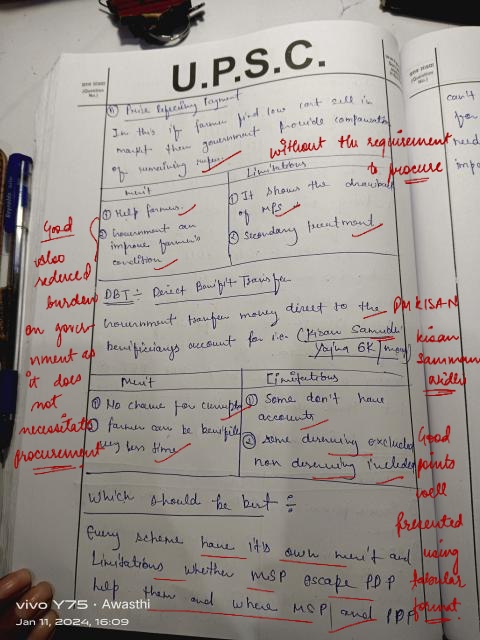 U.P.S.C.
Payment
In this if farmer find low cost sell in
market then government provide compensation
of remaining
without the requirement
to procure
Merit
Limitations
① Help farmers.
② Government can
improve farmer's
condition
① It shows the drawback
of MPS
② Secondary
Good
also
reduced
burden
on gover
nment as
it does
not
necessitate
procurement
DBT :- Direct Benifit Transfer
Government transfer money direct to the
benificiarys account for i.e. (kisan
6K
PM KISAN
kisan
Samman
Merit
Limitations
① No chance for
② farmer can be
very less time
① Some don't have
accounts
② some deserving excluded
non deserving included
Good
points
well
presented
using
tabular
format.
Which should be best :
Every scheme have it's own merit and
Limitations whether MSP PDP
help them and where MSP and PDP
vivo Y75 · Awasthi
Jan 11, 2024, 16:09